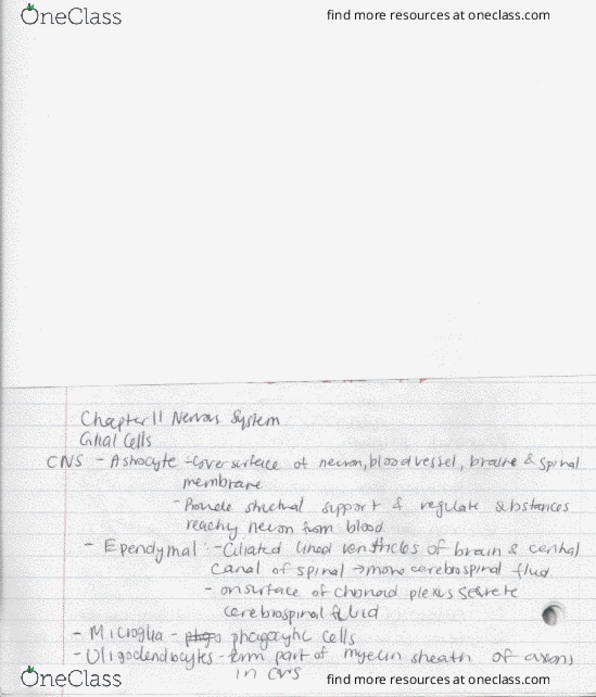 OneClass
find more resources at oneclass.com
Chapter 11 Nervous System
Glial Cells
CNS - Astrocyte - Cover surface of neuron, blood vessel, braine & spinal
membrane
- Provide structual support & regulate substances
reachy neuron from blood.
- Ependymal: - Ciliated lined ventricles of brain & central
Canal of spinal → move cerebrospinal fluid.
- on surface of choroid plexus secrete
cerebrospinal fluid
- Microglia - phago phagocytic cells
- Oligodendrocytes - form part of myelin sheath of axons
in CNS
OneClass
find more resources at oneclass.com